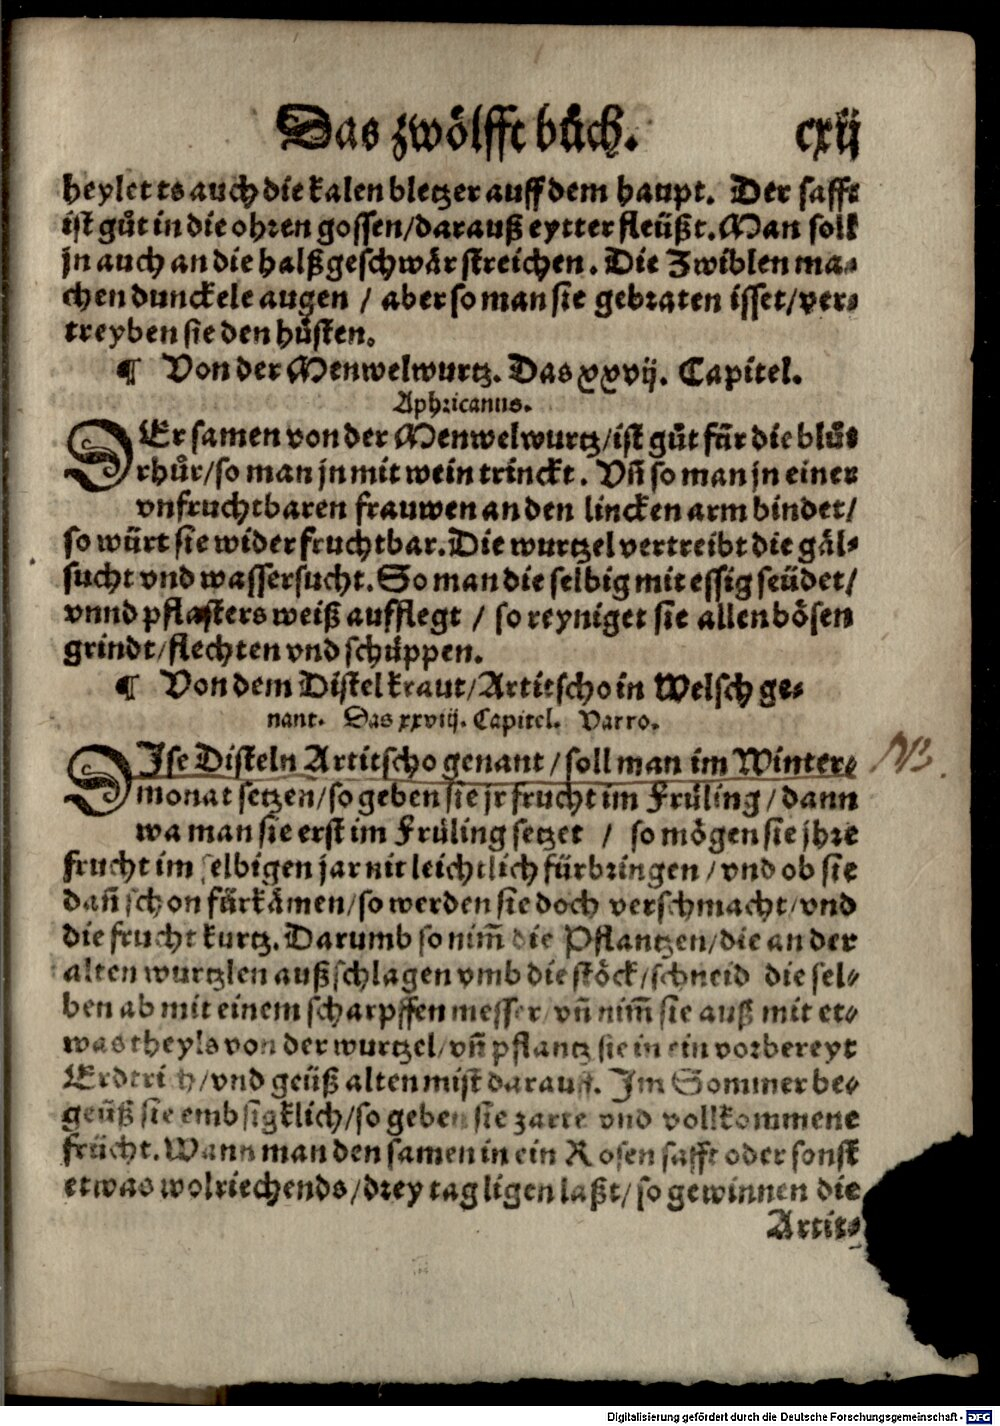 Das zwölfft bůch. cxij
heylet es auch die kalen bletzer auff dem haupt. Der safft
ist gůt in die ohren gossen/darauß eytter fleüßt. Man soll
jn auch an die halßgeschwär streichen. Die Zwiblen ma⸗
chen dunckele augen / aber so man sie gebraten isset/ver⸗
treyben sie den hůsten.
¶ Von der Menwelwurtz. Das xxvij. Capitel.
Aphricanus.
DEr samen von der Menwelwurtz/ist gůt für die blůt
rhůr/so man jn mit wein trinckt. Vñ so man jn einer
vnfruchtbaren frauwen an den lincken arm bindet/
so würt sie wider fruchtbar. Die wurtzel vertreibt die gäl⸗
sucht vnd wassersucht. So man die selbig mit essig seüdet/
vnnd pflasters weiß aufflegt / so reyniget sie allen bösen
grindt/flechten vnd schüppen.
¶ Von dem Distelkraut/Artitscho in Welsch ge⸗
nant. Das xxviij. Capitel. Varro.
DIse Disteln Artitscho genant/soll man im Winter⸗
monat setzen/so geben sie jr frucht im Früling/dann
wa man sie erst im Früling setzet / so mögen sie jhre
frucht im selbigen jar nit leichtlich fürbringen/vnd ob sie
dañ schon fürkämen/so werden sie doch verschmacht/vnd
die frucht kurtz. Darumb so nim̃ die Pflantzen/die an der
alten wurtzlen außschlagen vmb die stöck/schneid die sel⸗
ben ab mit einem scharpffen messer/vñ nim̃ sie auß mit et⸗
was theyls von der wurtzel/vñ pflantz sie in ein vorbereyt
Erdtrich/vnd geüß alten mist darauff. Im Sommer be⸗
geüß sie embsigklich/so geben sie zarte vnd vollkommene
frücht. Wann man den samen in ein Rosen safft oder sonst
etwas wolriechends/drey tag ligen laßt/so gewinnen die
Artit⸗
NB.
Digitalisierung gefördert durch die Deutsche Forschungsgemeinschaft - DFG